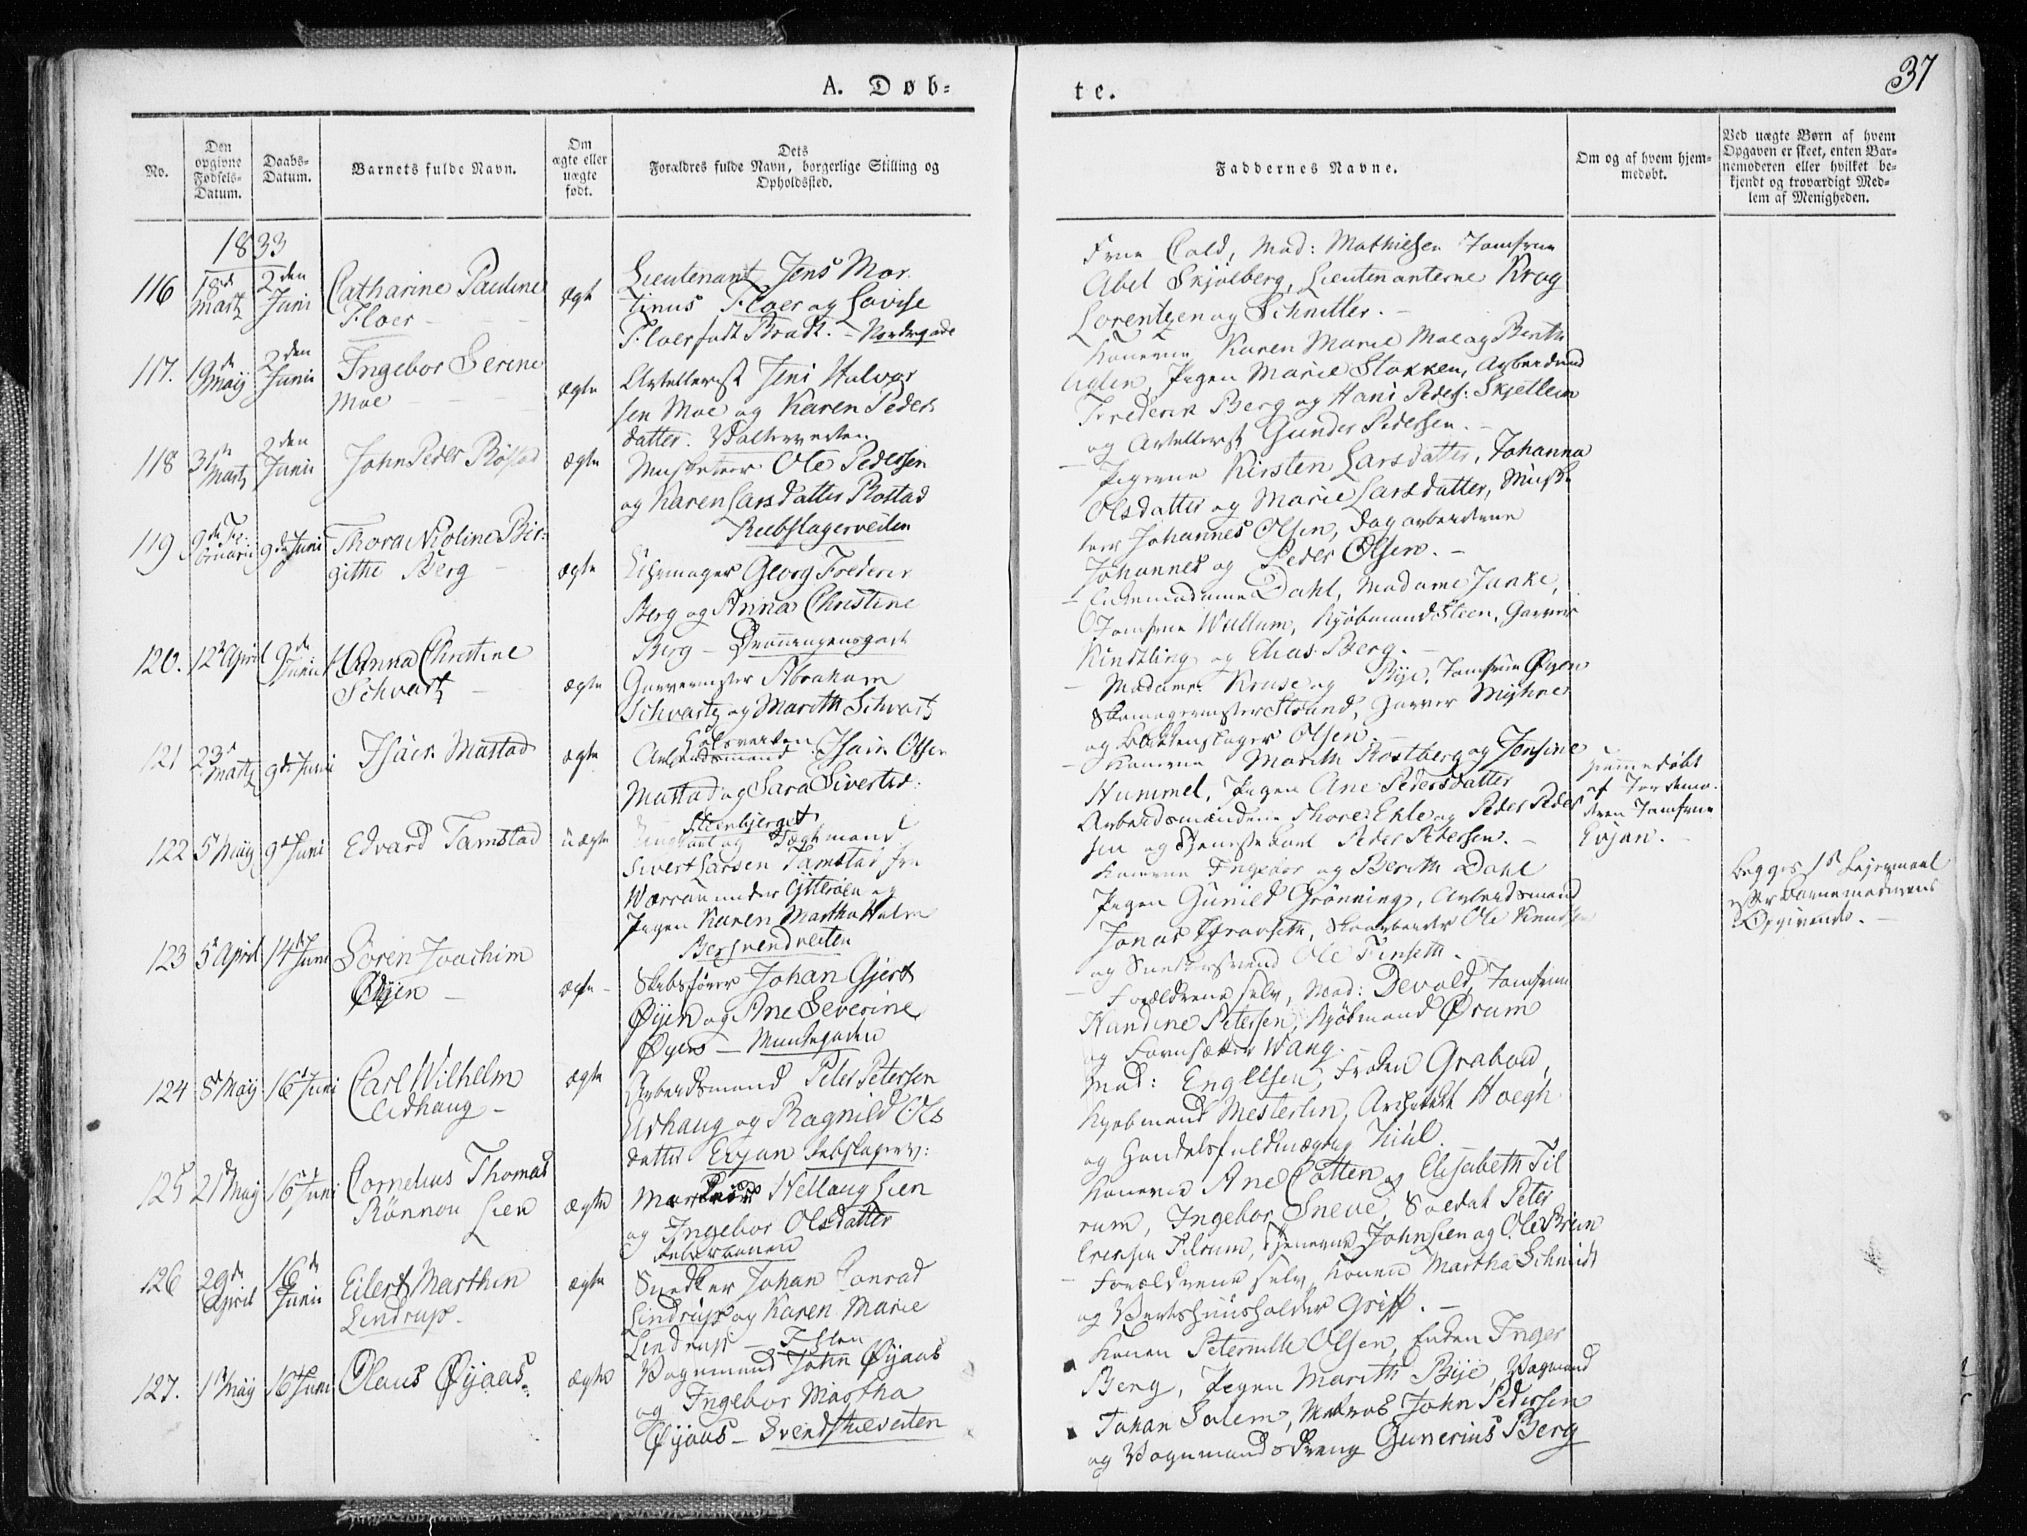 37
A. Døb-
te.
No.
Den opgivne Fødsels-Datum.
Daabs-Datum.
Barnets fulde Navn.
Om ægte eller uægte født.
Dets Forældres fulde Navn, borgerlige Stilling og Opholdssted.
Faddernes Navne.
Om og af hvem hjemmedøbt.
Ved uægte Børn af hvem Opgaven er skeet, enten Barnemoderen eller hvilket bekjendt og troværdigt Medlem af Menigheden.
1833
116
18d Martz
2den Juni
Catharine Pauline
Floer
ægte
Lieutenant Jens Mor
tinus Floer og Lovise
Floer født Bradt. - Nordregade
Frue Cold, Mad: Mathiesen Jomfrue
Abel Skjølberg, Lieutenanterne Krog
Lorentzen og Schnitler. -
117.
19de Maij
2den Junii
Ingebor Serene
Moe
ægte
Artellerist Jens Halvor
sen Moe og Karen Peders
datter.
Konerne Karen Marie Moe og Berith
Aglen, Pigen Marie Stokken, Arbeidsmd
Frederik Berg og Hans Peders: Skjetlein
og Artellerist Gunder Pedersen. -
118
31te Martz
2den Junii
John Peder Røstad
ægte
Musketeer Ole Pedersen
og Karen Larsdatter Rostad
Reebslagerveiten
Pigerne Kirsten Larsdatter, Johanna
Olsdatter og Marie Larsdatter, Muske
teer Johannes Olsen, Dagarbeiderne
Johannes og Peder Olsen. -
119
9de Februarii
9de Juni
Thora Nicoline Bir-
githe Berg
ægte
Georg Frederik
Berg og Anna Christine
Berg - Dronningensgade
Dahl, Madame Junke,
Jomfrue Wullum, Kjøbmand Steen, Garver
Kindtling og Elias Berg. -
120.
12te April
9de Junii
Hanna Christine
Schvartz
ægte
Garvermester Abraham
Schvartz og Marith Schvartz
Madame Kruse og Bye, Jomfrue Øyen
Skomagermester Strand, Garver
og Blikkenslager Olsen. -
121
23d Martz
9de Junii
Isack Mastad
ægte
Arbeidsmand Isack Olsen
Mastad og Sara Sivertsd:
Steenbjerget
Konerne Marith Rostberg og Jensine
Hummel, Pigen Ane Pedersdatter
Arbeidsmændene Thore Ehle og Peder Peder
sen og Tjenestekarl Peder Pedersen. -
Hjemmedøbt
af Jordemo-
deren Jomfrue
Evjan. -
122
5t Maij
9de Juni
Edvard Tamstad
uægte
Ungkarl og
Sivert Larsen Tamstad fra
Pigen Karen Martha Holm
Bersvendveiten
Konerne Ingebor og Berith Dahl
Pigen Gunild Grønning, Arbeidsmand
Jonas Ole Knudsen
og Snedkersvend Ole Finseth.
Begges 1ste Leiermaal
efter Barnemoderens
Opgivende. -
123
5t April
14de Juni
Sören Joachim
Øijen
ægte -
Skibsfører Johan Gjert
Øijen og Ane Severine
Øyen - Munkegaden
Forældrene selv, Mad: Devold, Jomfrue
Hundine Petersen, Kjøbmand Ørum
og Wang.
124
8d Maij
16d Juni
Carl Wilhelm
Eidhaug -
ægte
Arbeidsmand Peter Petersen
Eidhaug og Ragnild Ols
datter Evjan
Mad: Engelsen, Frøken Grabou,
Kjøbmand Mesterlin, Architekt Hoegh
og Handelsfuldmægtig Kuhl.
125
21d Maij
16d Juni
Cornelius Thomas
Rönnou Lien
ægte
Hellaug Lien
og Ingebor Olsdatter
Konerne Ane Catten og Elisabeth Til
rum, Ingebor Sneve, Soldat Peter
Ericksen Tilrum, John Lien og Ole Brun
126
29de April
16de Junii
Eilert Marthin
Lindrup.
ægte
Snedker Johan Conrad
Lindrup og Karen Marie
Lindrup -
Forældrene selv, Konen Martha Schmidt
og Vertshuusholder Griff. -
127.
1t Maij
16d Juni
Olaus Øijaas.
ægte
Vognmand John Øijaas
og Ingebor Martha
Øijaas -
Konen Peternille Olsen, Enken Inger
Berg, Pigen Marith Bye, Vognmand
Johan Solem, Matros John Pedersen
og Vognmandsdreng Gunerius Berg